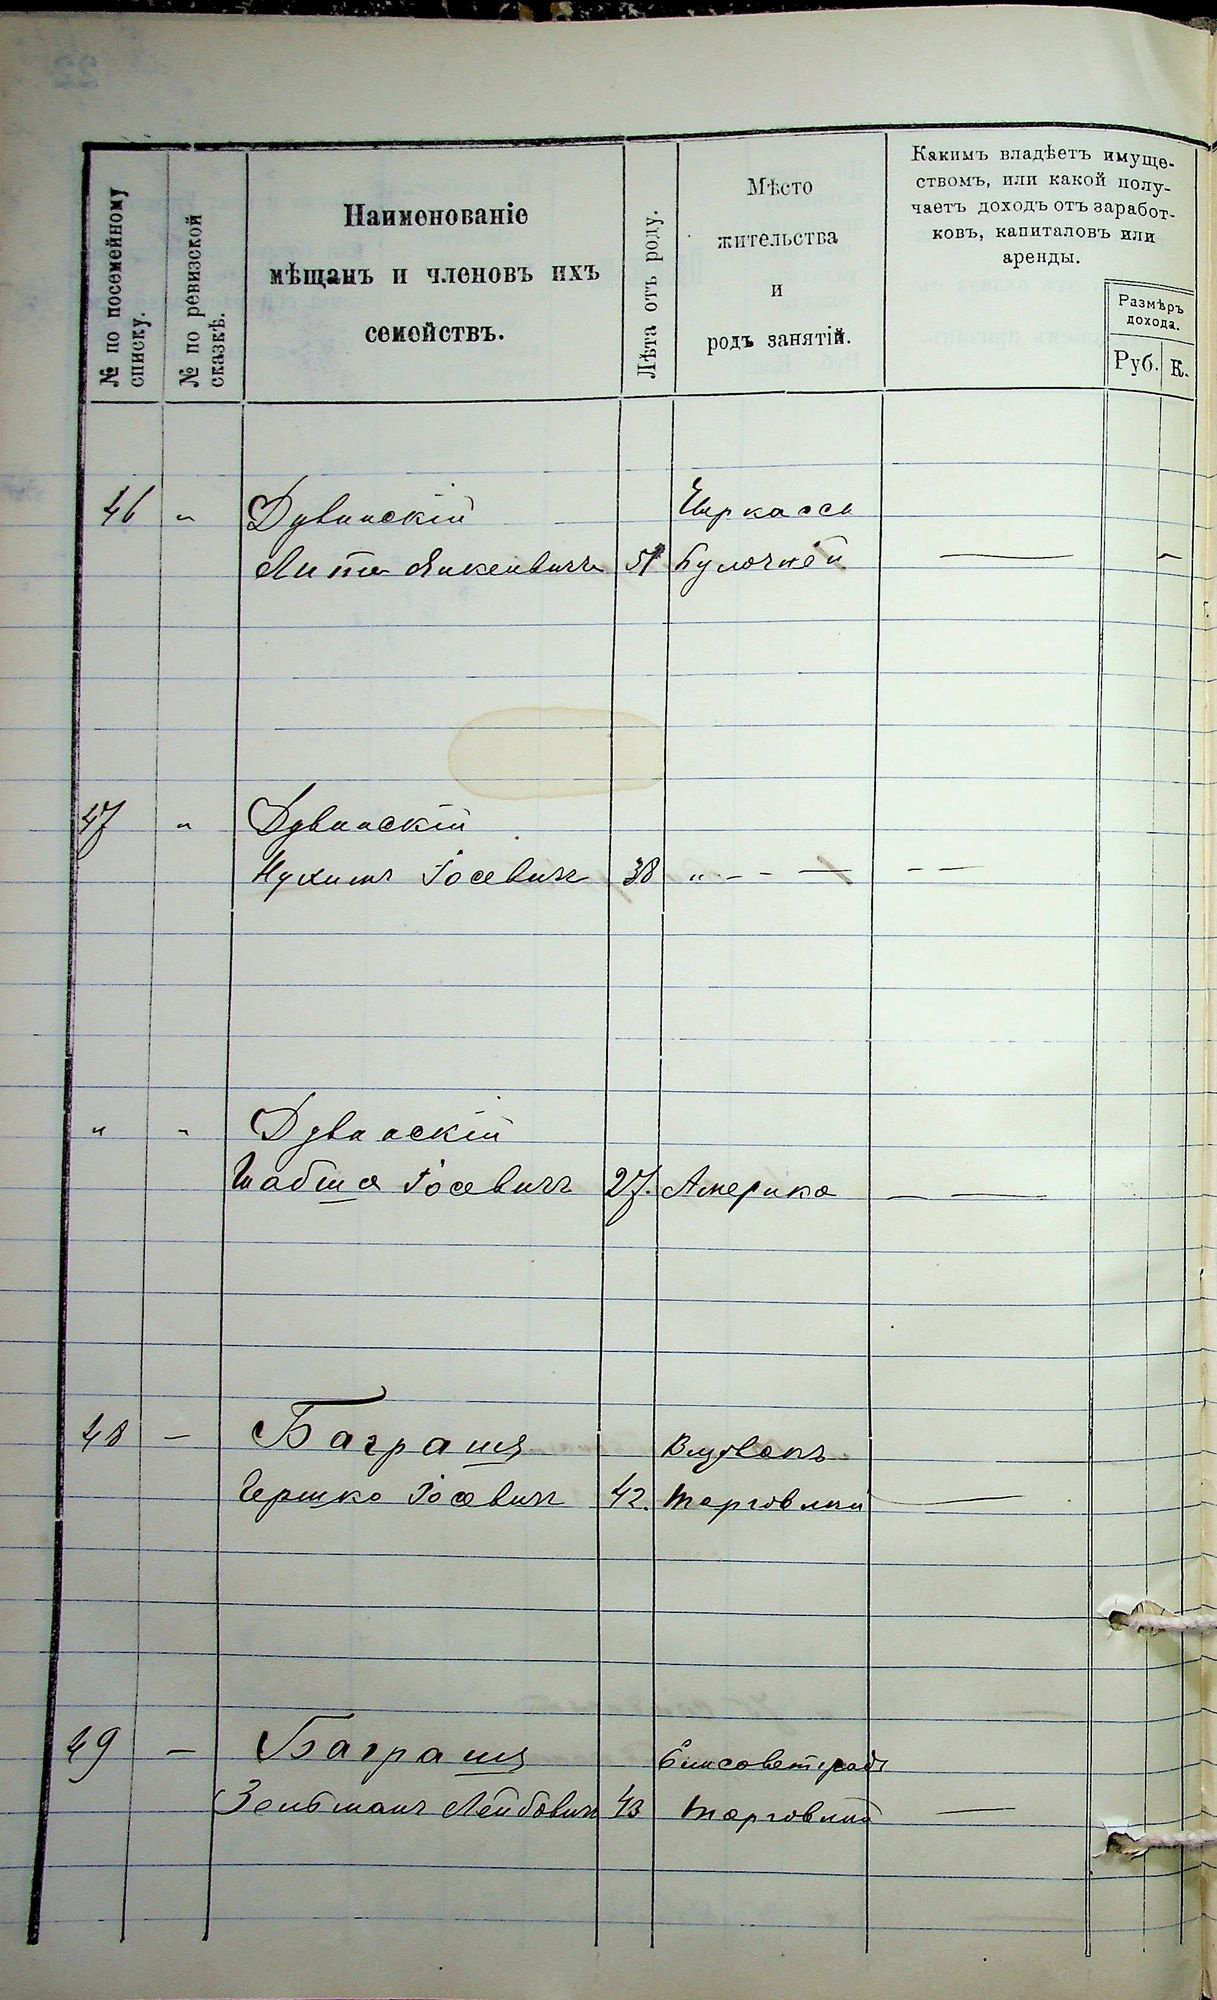 № по посемейному списку.
№ по ревизской сказкѣ.
Наименованіе
мѣщанъ и членовъ ихъ
семействъ.
Лѣта отъ роду.
Мѣсто
жительства
и
родъ занятій.
Какимъ владѣетъ имуще-
ствомъ, или какой полу-
чаетъ доходъ отъ заработ-
ковъ, капиталовъ или
аренды.
Размѣръ
дохода.
Руб. К.
46 " Дувинскій Черкассы
Янкелевичъ 51 Булочной —
47 " Дувинскій
Нухимъ Іосевичъ 38 " - - — - —
" " Дувинскій
Шабша Іосевичъ 27. Америка — —
48 — Баграшъ
Гершко Іосевичъ 42. торговлий —
49 — Баграшъ Елисоветградъ
Зельманъ Лейбовичъ 43 торговлий —